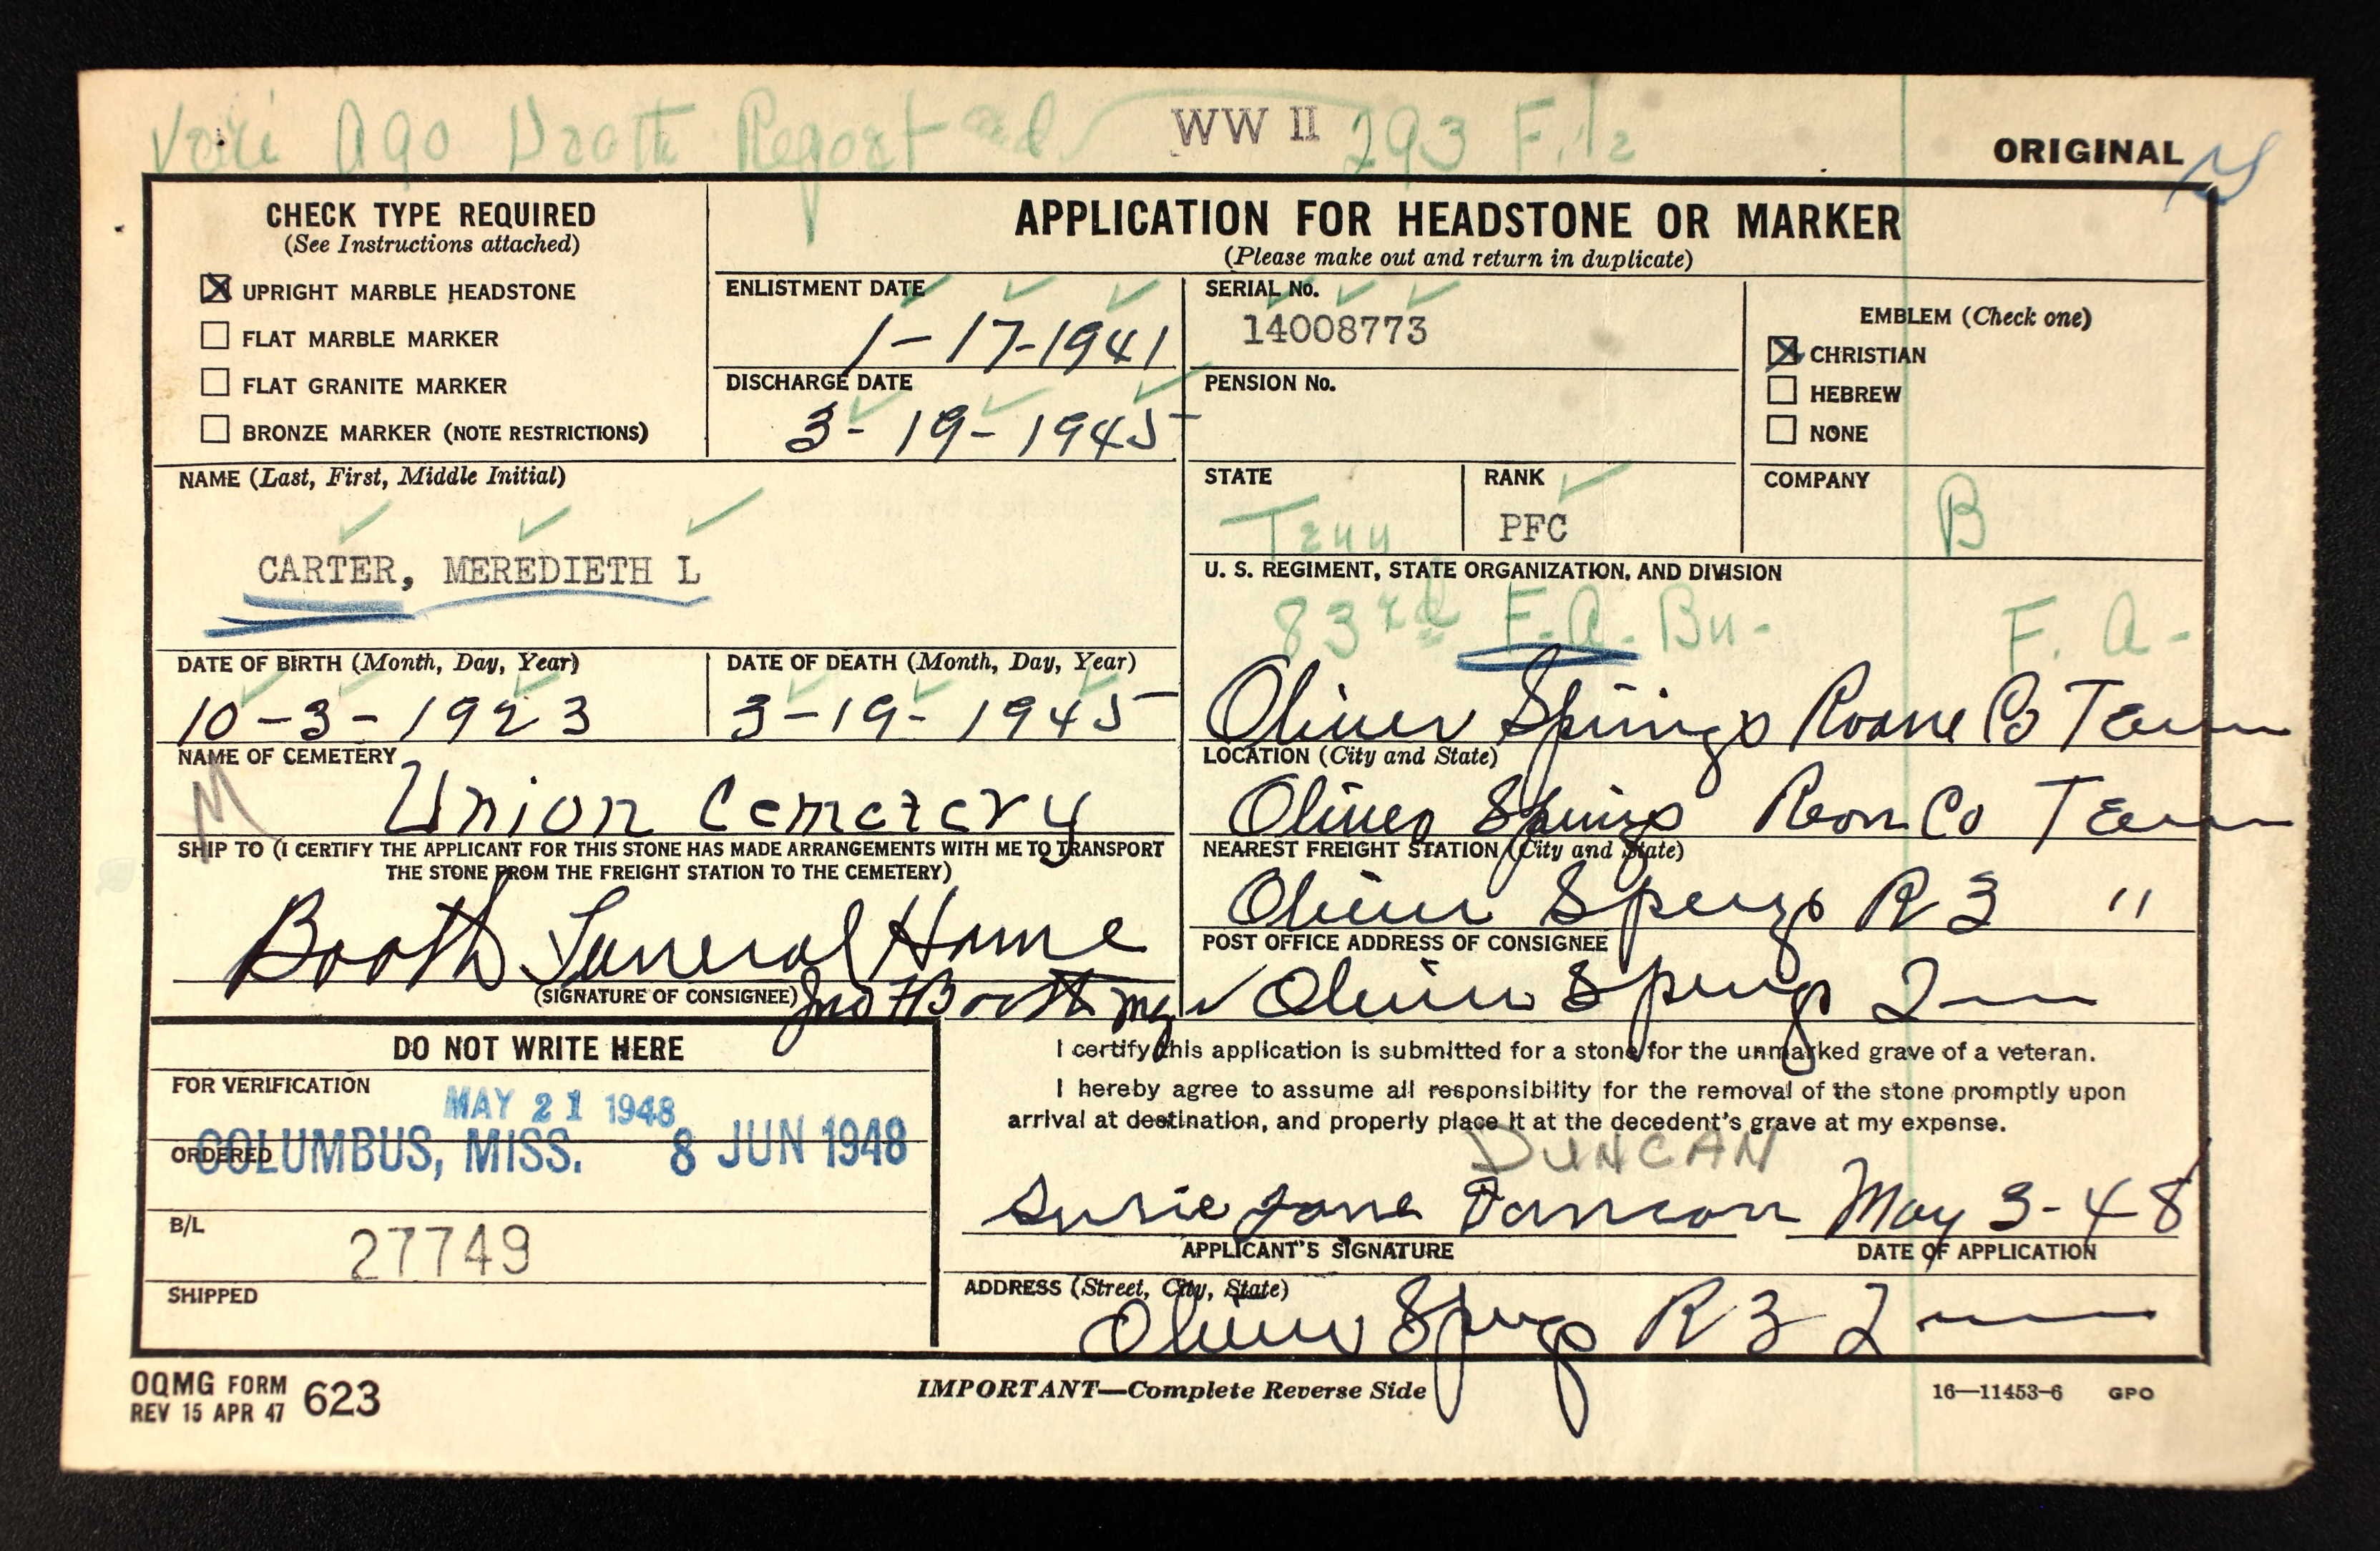 Veri AGO Death Report and 293 File
WW II
ORIGINAL
CHECK TYPE REQUIRED
(See Instructions attached)
☒ UPRIGHT MARBLE HEADSTONE
☐ FLAT MARBLE MARKER
☐ FLAT GRANITE MARKER
☐ BRONZE MARKER (NOTE RESTRICTIONS)
APPLICATION FOR HEADSTONE OR MARKER
(Please make out and return in duplicate)
ENLISTMENT DATE
1-17-1941
DISCHARGE DATE
3-19-1945
SERIAL No.
14008773
PENSION No.
EMBLEM (Check one)
☒ CHRISTIAN
☐ HEBREW
☐ NONE
NAME (Last, First, Middle Initial)
CARTER, MEREDIETH L
STATE
Tenn
RANK
PFC
COMPANY
B
U. S. REGIMENT, STATE ORGANIZATION, AND DIVISION
83rd F.A. Bn. F. A.
DATE OF BIRTH (Month, Day, Year)
10-3-1923
DATE OF DEATH (Month, Day, Year)
3-19-1945
Oliver Springs Roane Co Tenn
NAME OF CEMETERY
M
Union Cemetery
LOCATION (City and State)
Oliver Springs Roan Co Tenn
SHIP TO (I CERTIFY THE APPLICANT FOR THIS STONE HAS MADE ARRANGEMENTS WITH ME TO TRANSPORT
THE STONE FROM THE FREIGHT STATION TO THE CEMETERY)
Booth Funeral Home
(SIGNATURE OF CONSIGNEE) Jno H Booth mgr
NEAREST FREIGHT STATION (City and State)
Oliver Springs R 3 "
POST OFFICE ADDRESS OF CONSIGNEE
Oliver Springs Tenn
DO NOT WRITE HERE
FOR VERIFICATION
MAY 21 1948
ORDERED
COLUMBUS, MISS. 8 JUN 1948
B/L
27749
SHIPPED
I certify this application is submitted for a stone for the unmarked grave of a veteran.
I hereby agree to assume all responsibility for the removal of the stone promptly upon
arrival at destination, and properly place it at the decedent's grave at my expense.
DUNCAN
Susie Jane Duncan May 3-48
APPLICANT'S SIGNATURE
DATE OF APPLICATION
ADDRESS (Street, City, State)
Oliver Springs R 3 Tenn
OQMG FORM 623
REV 15 APR 47
IMPORTANT—Complete Reverse Side
16—11453-6 GPO